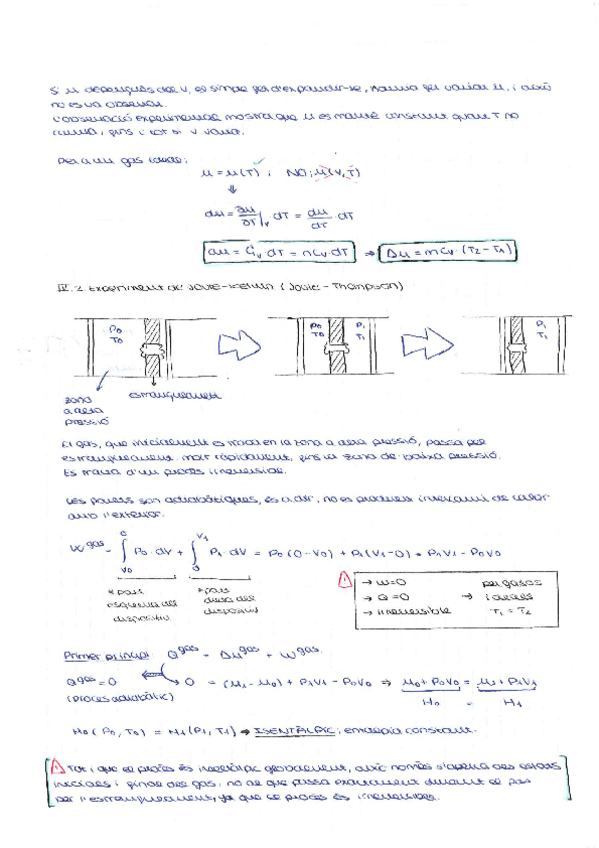 Si u depengués del V, el simple fet d'expandir-se, hauria fet variar u, i això
no es va observar.
L'observació experimental mostra que u es manté constant quan T no
canvia, fins i tot si V varia.
Per a un gas ideal:
u = u(T) ; NO: u(V,T)
⇓
du = ∂u/∂T |v dT = du/dT · dT
du = Cv dT = ncv·dT ⇒ Δu = ncv·(T2 - T1)
IV.2 Experiment de Joule-Kelvin (Joule-Thompson)
P0 T0
P0 T0 P1 T1
P1 T1
zona a alta pressió
estrangulament
El gas, que inicialment es troba en la zona a alta pressió, passa per
estrangulament molt ràpidament, fins la zona de baixa pressió.
Es tracta d'un procés irreversible.
Les parets són adiabàtiques, és a dir, no es produeix intercanvi de calor
amb l'exterior.
W gas = ∫ V0 0 P0·dV + ∫ 0 V1 P1·dV = P0(0-V0) + P1(V1-0) = P1V1 - P0V0
* part esquerra del dispositiu
* part dreta del dispositiu
→ W=0
→ Q=0
→ irreversible
→ per gasos ideals T1 = T2
Primer principi: Q gas = Δu gas + W gas
Q gas = 0 0 = (u1 - u0) + P1V1 - P0V0 ⇒ u0 + P0V0 = u1 + P1V1
(procés adiabàtic) H0 = H1
H0(P0,T0) = H1(P1,T1) → ISENTÀLPIC; entalpia constant.
Tot i que el procés és isentàlpic globalment, això només s'aplica als estats
inicials i finals del gas, no al que passa exactament durant el pas
per l'estrangulament, ja que el procés és irreversible.